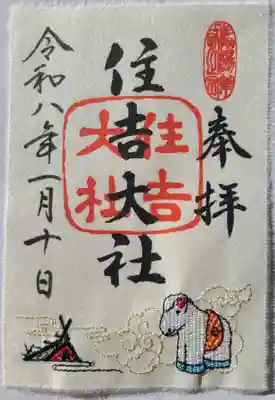 奉拝
住吉大社
住吉大社
令和八年一月十日